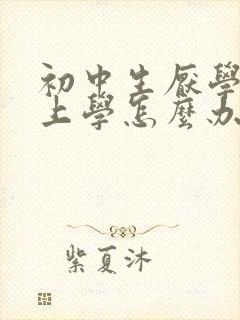 初中生厭學
上學怎麼办
紫夏沐